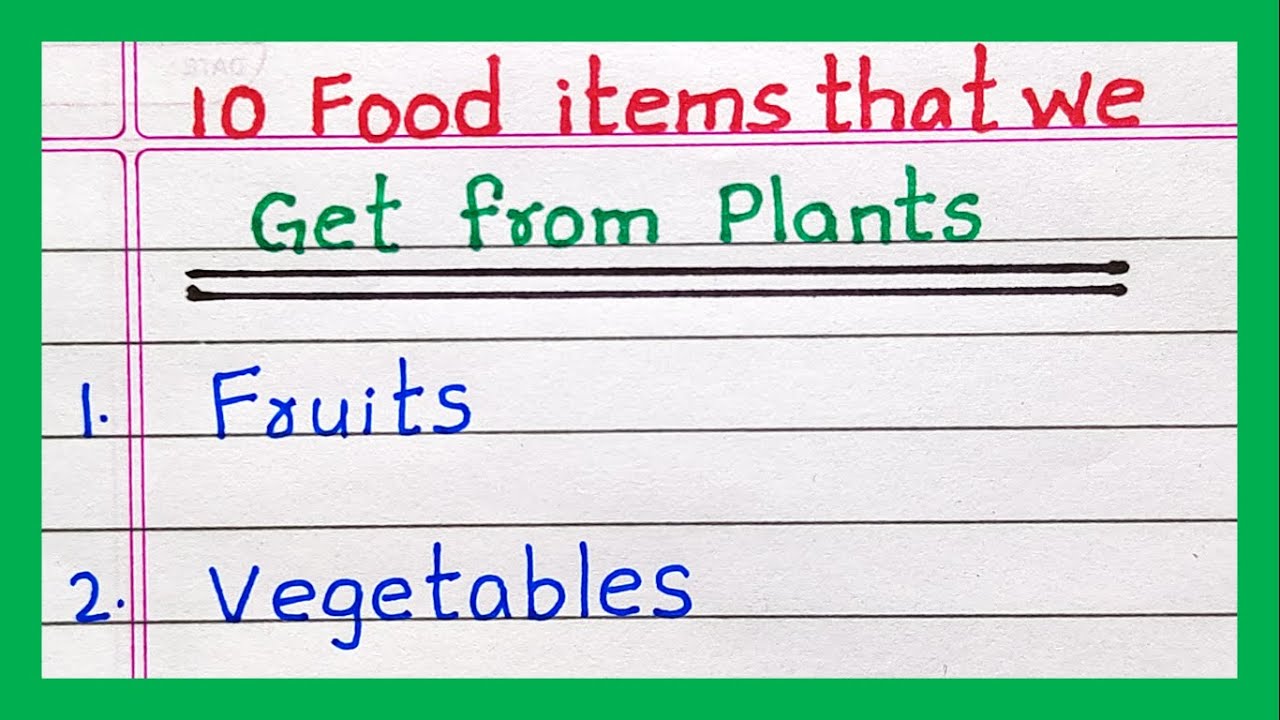 10 Food items that we
Get from Plants
1. Fruits
2. Vegetables